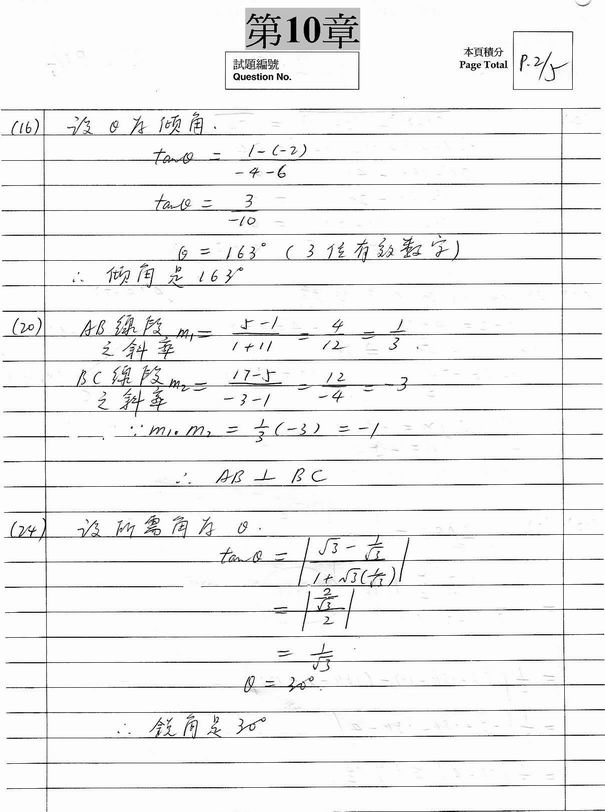 第10章
試題編號
Question No.
本頁積分
Page Total
P.2/5
(16) 设 θ 为 倾角.
tanθ = (1-(-2))/(-4-6)
tanθ = 3/(-10)
θ = 163° (3位有效數字)
∴ 倾角是 163°
(20) AB線段之斜率 m₁ = (5-1)/(1+11) = 4/12 = 1/3.
BC線段之斜率 m₂ = (17-5)/(-3-1) = 12/(-4) = -3
∵ m₁·m₂ = 1/3(-3) = -1
∴ AB ⊥ BC
(24) 设所需角为 θ.
tanθ = |(√3 - 1/√3)/(1+√3(1/√3))|
= |(2/√3)/2|
= 1/√3
θ = 30°.
∴ 銳角是 30°